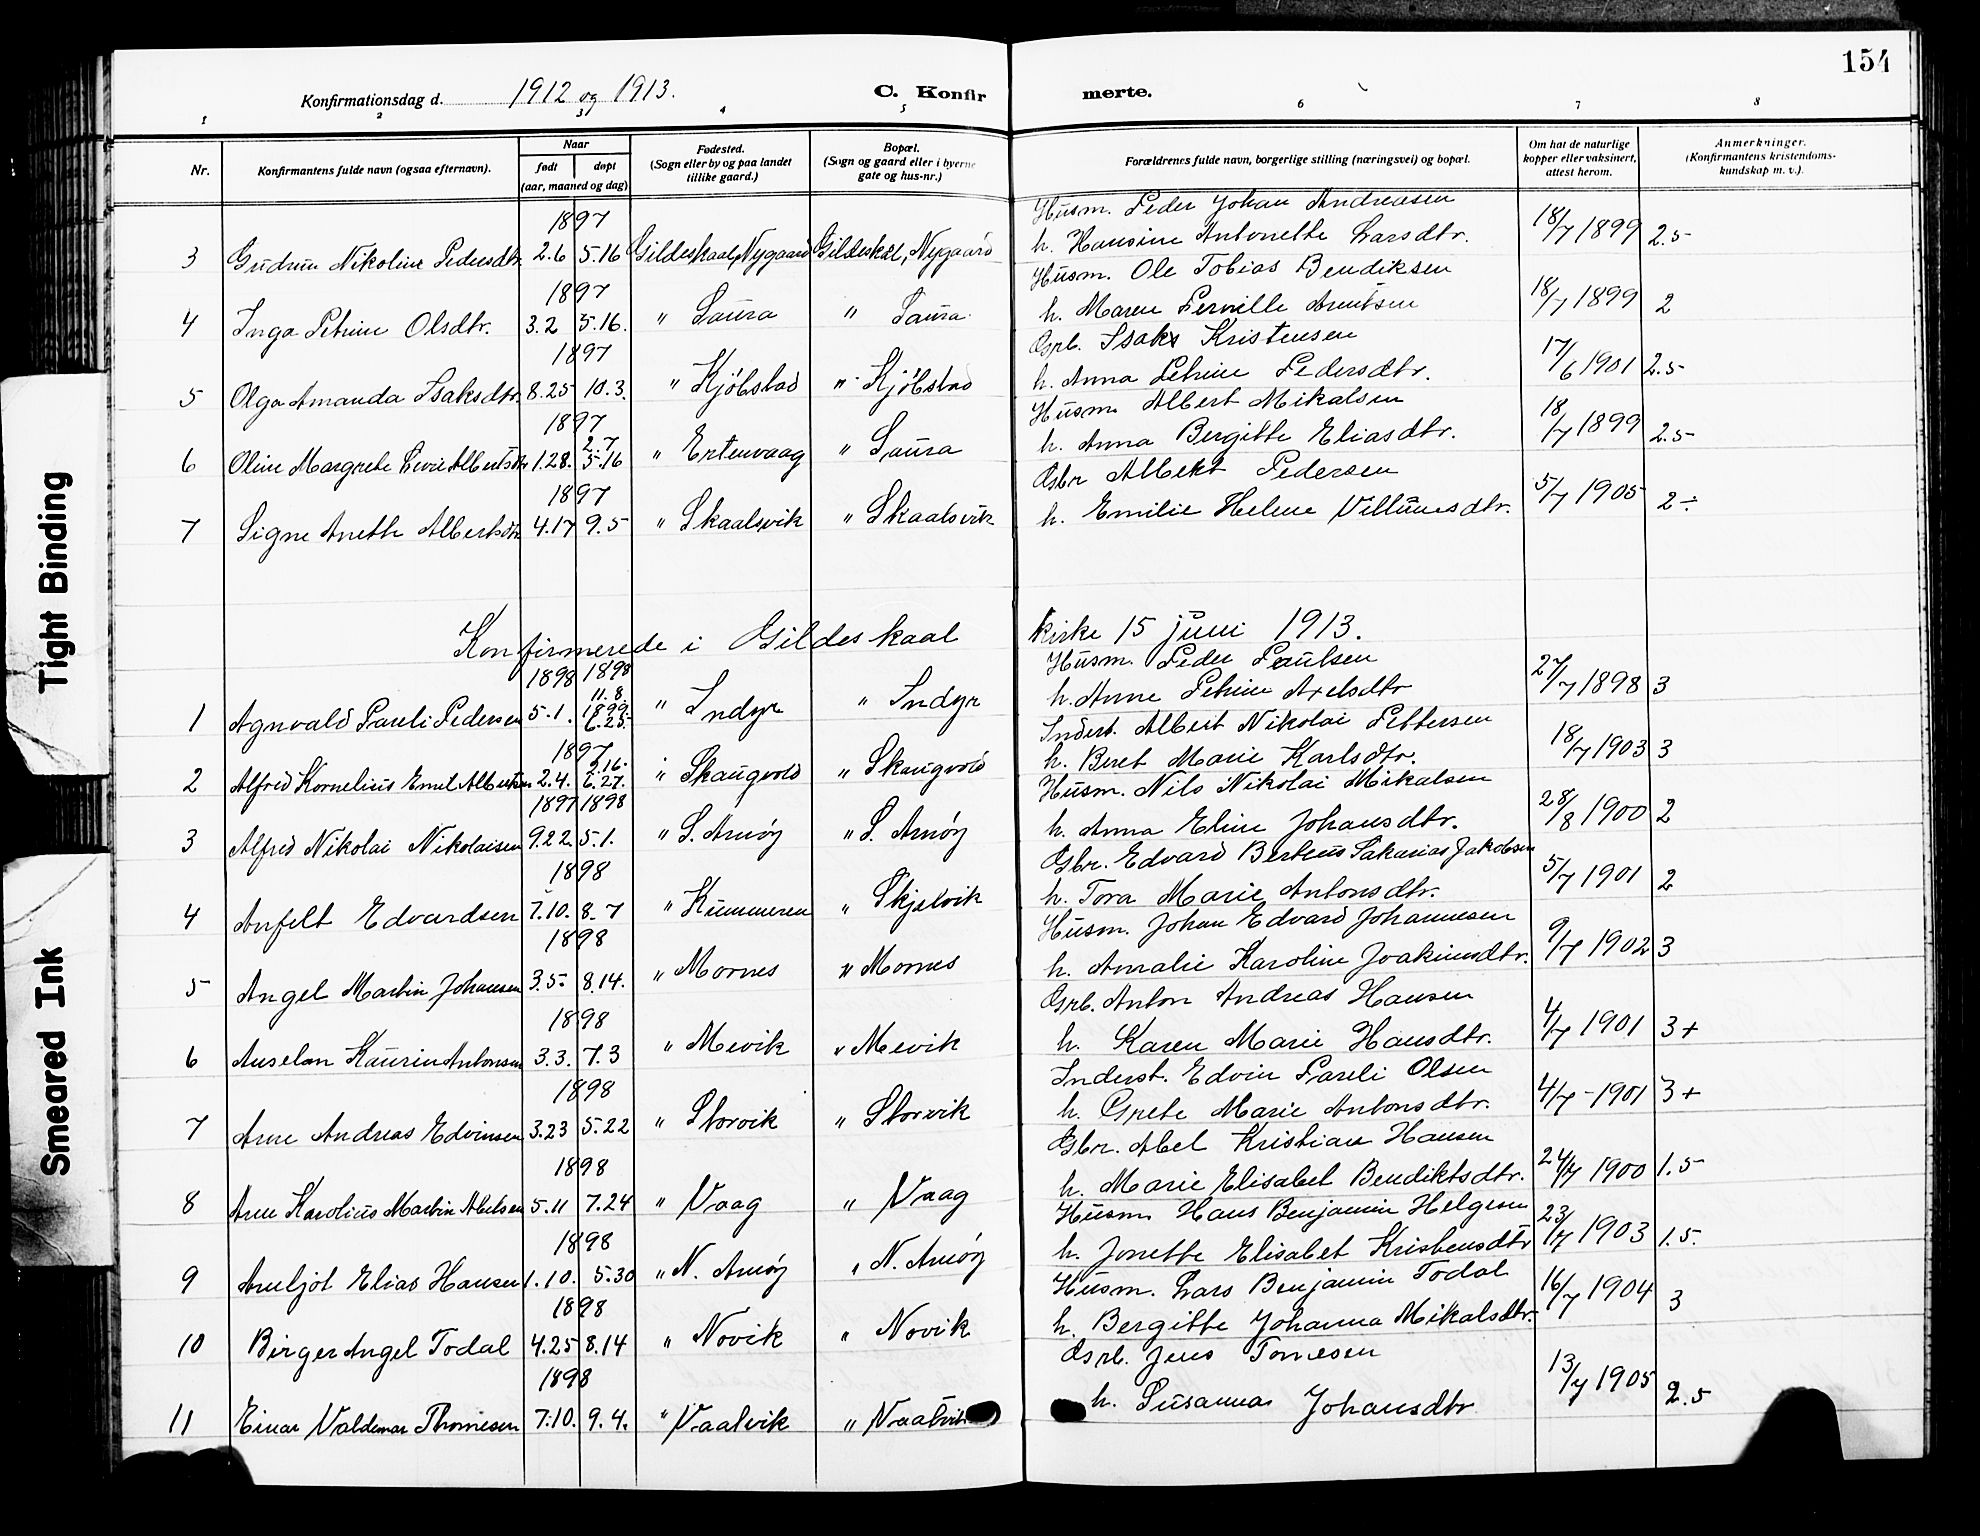 154
Konfirmationsdag d. 1912 og 1913. C. Konfirmerte.
1 2 3 4 5 6 7 8
Nr. Konfirmantens fulde navn (ogsaa efternavn). Naar født døpt (aar, maaned og dag) Fødested. (Sogn eller by og paa landet tillike gaard.) Bopæl. (Sogn og gaard eller i byerne gate og hus-nr.) Forældrenes fulde navn, borgerlige stilling (næringsvei) og bopæl. Om hat de naturlige kopper eller vaksinert, attest herom. Anmerkninger. (Konfirmantens kristendoms-kundskap m. v.).
1897 Husm. Peder Johan Andreasen
3 Gudrun Nikoline Pedersdtr. 2.6 5.16 Gildeskaal, Nygaard Gildeskal, Nygaard h. Hansine Antonette Larsdtr. 18/7 1899 2.5
1897 Husm. Ole Tobias Bendiksen
4 Inga Petrine Olsdtr. 3.2 5.16. " Saura " Saura. h. Maren Pernille Arntsen 18/7 1899 2
1897 Gprb. Isaks Kristensen
5 Olga Amanda Isaksdtr. 8.25 10.3. " Kjøbstad " Kjøbstad h. Anna Petrine Pedersdtr. 17/6 1901 2.5
1897 Husm. Albert Mikalsen
6 Oline Margrete Albertsdtr 1.28. 2.7 5.16 " Ertenvaag " Saura h. Anna Bergitte Eliasdtr. 18/7 1899 2.5
1897 Gbr Albert Pedersen
7 Signe Aneth Albertsdtr 4.17 9.5 " Skaalsvik " Skaalsvik h. Emilie Helene Villumsdtr. 5/7 1905 2÷
Konfirmerede i Gildeskaal kirke 15 juni 1913.
1898 1898 Husm. Peder Paulsen
1 Agnvald Pareli Pedersen 5.1. 11.8. 1899. 6.25. " Indyr " Indyr h. Anne Petrine Axelsdtr 27/7 1898 3
1897 Inderst. Albert Nikolai Pettersen
2 Alfred Kornelius Emil Albertsen 2.4. 5.16. 6.27. " Skaugvold " Skaugvold h. Beret Marie Karlsdtr. 18/7 1903 3
1897 1898 Husm. Nils Nikolai Mikalsen
3 Alfred Nikolai Nikolaisen 9.22. 5.1. " S. Arnøy " S. Arnøy h. Anna Eline Johansdtr. 28/8 1900 2
1898 Gbr. Edvard Berteus Sakarias Jakobsen
4 Anfelt Edvardsen 7.10. 8.7 " Kunnneren " Skjelvik h. Tora Marie Antonsdtr. 5/7 1901 2
1898 Husm. Johan Edvard Johannesen
5 Angel Martin Johansen 3.5. 8.14. " Mornes " Mornes h. Amalie Karoline Joakimsdtr. 9/7 1902 3
1898 Gprb. Anton Andreas Hansen
6 Anselan Kaurin Antonsen 3.3. 7.3 " Mevik " Mevik h. Karen Marie Hansdtr. 4/7 1901 3+
1898 Inderst. Edvin Pareli Olsen
7 Arne Andreas Edvinsen 3.23 5.22 " Storvik " Storvik h. Grete Marie Antonsdtr. 4/7 - 1901 3+
1898 Gbr. Abel Kristian Hansen
8 Arne Karolius Martin Abelsen 5.11 7.24 " Vaag " Vaag h. Marie Elisabet Bendiktsdtr. 24/7 1900 1.5
1898 Husm. Hans Benjamin Helgesen
9 Arnljot Elias Hansen 1.10. 5.30 " N. Arnøy " N. Arnøy h. Jonette Elisabet Kristensdtr 23/7 1903 1.5.
1898 Husm. Lars Benjamin Todal
10 Birger Angel Todal 4.25 8.14 " Novik " Novik h. Bergitte Johanna Mikalsdtr. 16/7 1904 3
1898 Gprb. Jens Tomesen
11 Einar Valdemar Thomesen 7.10. 9.4. " Vaalvik " Vaalvik h. Susanna Johansdtr 13/7 1905 2.5
Tight Binding
Smeared Ink